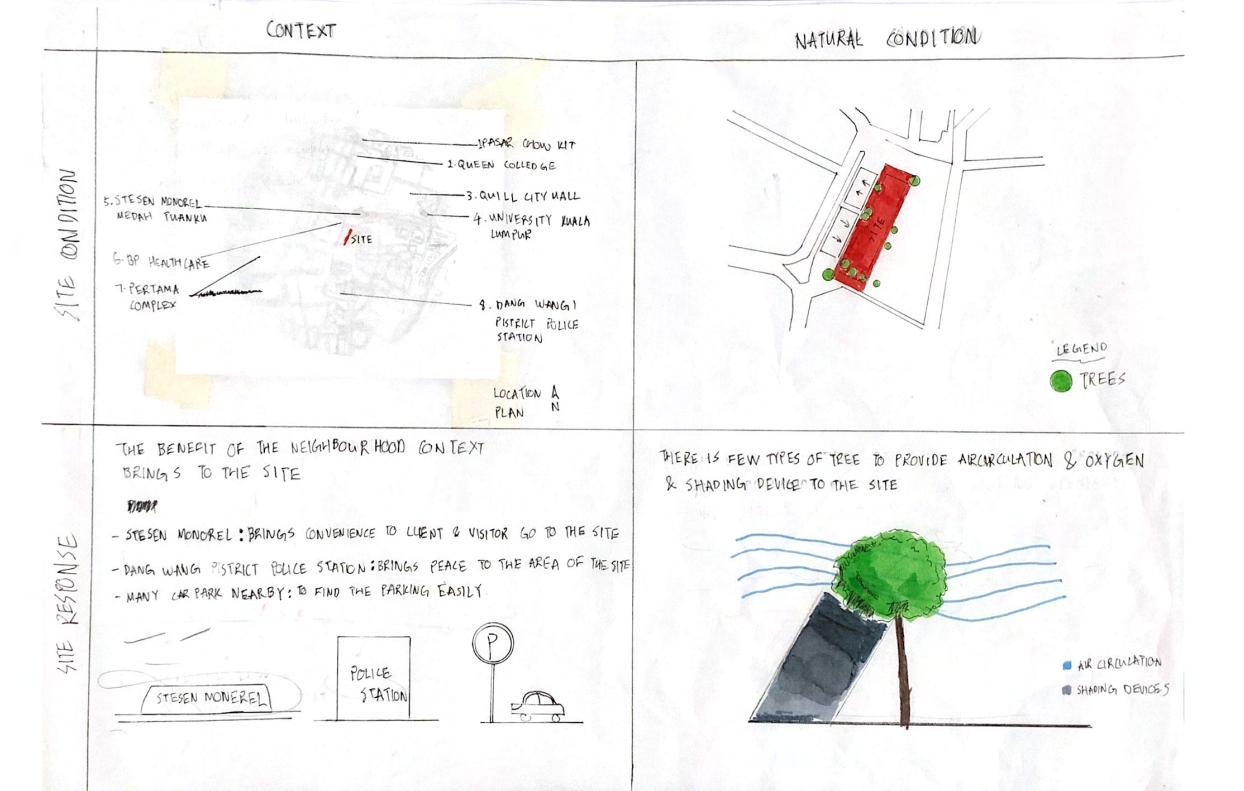 CONTEXT
NATURAL CONDITION
SITE CONDITION
1.PASAR CHOW KIT
2. QUEEN COLLEDGE
3. QUILL CITY MALL
4. UNIVERSITY KUALA
LUMPUR
5. STESEN MONOREL
MEDAH TUANKU
/SITE
6. BP HEALTHCARE
7. PERTAMA
COMPLEX
8. DANG WANGI
DISTRICT POLICE
STATION
LOCATION
PLAN
N
SITE
LEGEND
TREES
SITE RESPONSE
THE BENEFIT OF THE NEIGHBOURHOOD CONTEXT
BRINGS TO THE SITE
- STESEN MONOREL : BRINGS CONVENIENCE TO CLIENT & VISITOR GO TO THE SITE
- DANG WANG DISTRICT POLICE STATION : BRINGS PEACE TO THE AREA OF THE SITE
- MANY CAR PARK NEARBY : TO FIND THE PARKING EASILY
STESEN MONEREL
POLICE
STATION
P
THERE IS FEW TYPES OF TREE TO PROVIDE AIRCIRCULATION & OXYGEN
& SHADING DEVICE TO THE SITE
AIR CIRCULATION
SHADING DEVICES